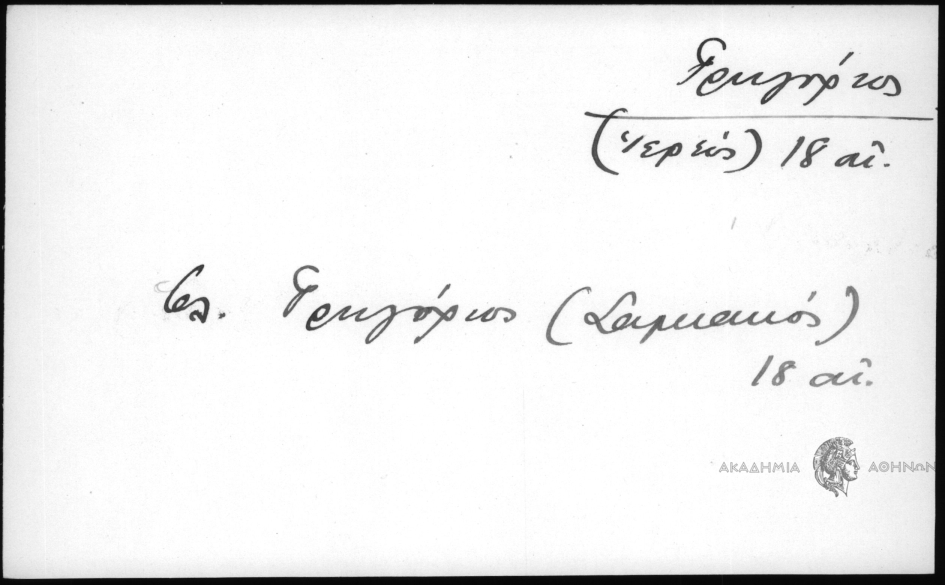 Γρηγόριος
(Ἱερεύς) 18 αἰ.
Βλ. Γρηγόριος (Σαρκακιός)
18 αἰ.
ΑΚΑΔΗΜΙΑ ΑΘΗΝΩΝ